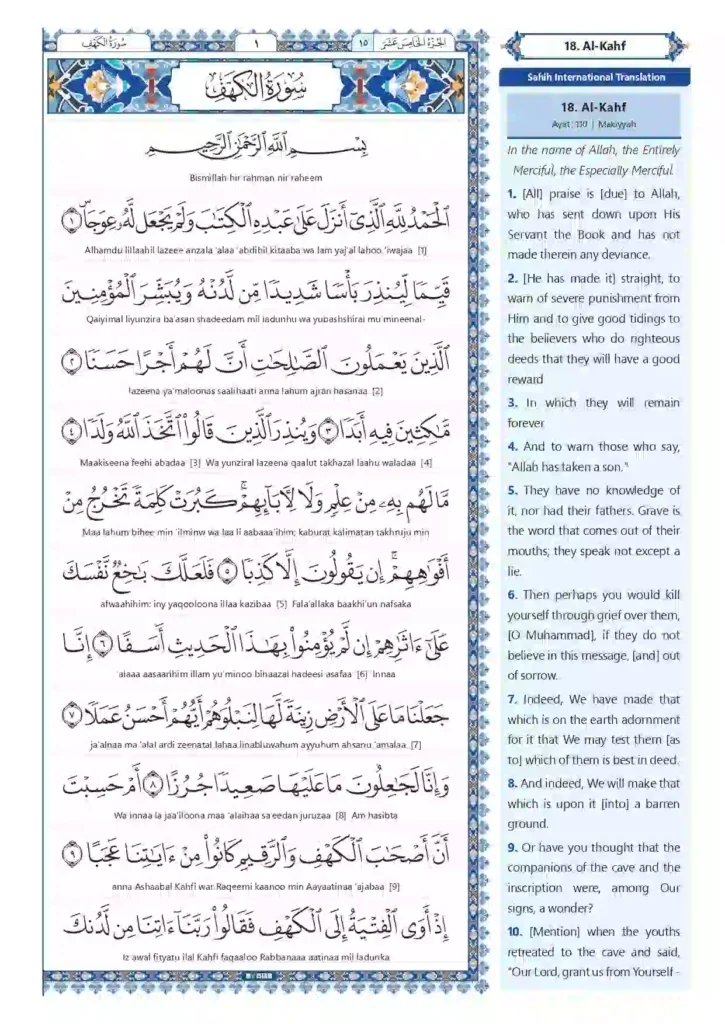 سُورَةُ الكَهۡفِ
١
١٥ الجُزءُ الخَامِسَ عَشَرَ
سُورَةُ الكَهۡفِ
بِسۡمِ ٱللَّهِ ٱلرَّحۡمَٰنِ ٱلرَّحِيمِ
Bismillah hir rahman nir raheem
ٱلۡحَمۡدُ لِلَّهِ ٱلَّذِيٓ أَنزَلَ عَلَىٰ عَبۡدِهِ ٱلۡكِتَٰبَ وَلَمۡ يَجۡعَل لَّهُۥ عِوَجَاۜ ١
Alhamdu lillaahil lazeee anzala 'alaa 'abdihil kitaaba wa lam yaj'al lahoo 'iwajaa [1]
قَيِّمٗا لِّيُنذِرَ بَأۡسٗا شَدِيدٗا مِّن لَّدُنۡهُ وَيُبَشِّرَ ٱلۡمُؤۡمِنِينَ
Qaiyimal liyunzira ba'asan shadeedam mil ladunhu wa yubashshiral mu'mineenal-
ٱلَّذِينَ يَعۡمَلُونَ ٱلصَّٰلِحَٰتِ أَنَّ لَهُمۡ أَجۡرًا حَسَنٗا ٢
lazeena ya'maloonas saalihaati anna lahum ajran hasanaa [2]
مَّٰكِثِينَ فِيهِ أَبَدٗا ٣ وَيُنذِرَ ٱلَّذِينَ قَالُواْ ٱتَّخَذَ ٱللَّهُ وَلَدٗا ٤
Maakiseena feehi abadaa [3] Wa yunziral lazeena qaalut takhazal laahu waladaa [4]
مَّا لَهُم بِهِۦ مِنۡ عِلۡمٖ وَلَا لِأٓبَآئِهِمۡۚ كَبُرَتۡ كَلِمَةٗ تَخۡرُجُ مِنۡ
Maa lahum bihee min 'ilminw wa laa li aabaaa'ihim; kaburat kalimatan takhruju min
أَفۡوَٰهِهِمۡۚ إِن يَقُولُونَ إِلَّا كَذِبٗا ٥ فَلَعَلَّكَ بَٰخِعٞ نَّفۡسَكَ
afwaahihim: iny yaqooloona illaa kazibaa [5] Fala'allaka baakhi'un nafsaka
عَلَىٰٓ ءَاثَٰرِهِمۡ إِن لَّمۡ يُؤۡمِنُواْ بِهَٰذَا ٱلۡحَدِيثِ أَسَفًا ٦ إِنَّا
'alaaa aasaarihim illam yu'minoo bihaazal hadeesi asafaa [6] Innaa
جَعَلۡنَا مَا عَلَى ٱلۡأَرۡضِ زِينَةٗ لَّهَا لِنَبۡلُوَهُمۡ أَيُّهُمۡ أَحۡسَنُ عَمَلٗا ٧
ja'alnaa ma 'alal ardi zeenatal lahaa linabluwahum ayyuhum ahsanu 'amalaa [7]
وَإِنَّا لَجَٰعِلُونَ مَا عَلَيۡهَا صَعِيدٗا جُرُزًا ٨ أَمۡ حَسِبۡتَ
Wa innaa la jaa'iloona maa 'alaihaa sa'eedan juruzaa [8] Am hasibta
أَنَّ أَصۡحَٰبَ ٱلۡكَهۡفِ وَٱلرَّقِيمِ كَانُواْ مِنۡ ءَايَٰتِنَا عَجَبًا ٩
anna Ashaabal Kahfi war Raqeemi kaanoo min Aayaatinaa 'ajabaa [9]
إِذۡ أَوَى ٱلۡفِتۡيَةُ إِلَى ٱلۡكَهۡفِ فَقَالُواْ رَبَّنَآ ءَاتِنَا مِن لَّدُنكَ
Iz awal fityatu ilal Kahfi faqaaloo Rabbanaaa aatinaa mil ladunka
18. Al-Kahf
Sahih International Translation
18. Al-Kahf
Ayat: 110 | Makiyyah
In the name of Allah, the Entirely
Merciful, the Especially Merciful
1. [All] praise is [due] to Allah,
who has sent down upon His
Servant the Book and has not
made therein any deviance.
2. [He has made it] straight, to
warn of severe punishment from
Him and to give good tidings to
the believers who do righteous
deeds that they will have a good
reward
3. In which they will remain
forever
4. And to warn those who say,
"Allah has taken a son."
5. They have no knowledge of
it, nor had their fathers. Grave is
the word that comes out of their
mouths; they speak not except a
lie.
6. Then perhaps you would kill
yourself through grief over them,
[O Muhammad], if they do not
believe in this message, [and] out
of sorrow.
7. Indeed, We have made that
which is on the earth adornment
for it that We may test them [as
to] which of them is best in deed.
8. And indeed, We will make that
which is upon it [into] a barren
ground.
9. Or have you thought that the
companions of the cave and the
inscription were, among Our
signs, a wonder?
10. [Mention] when the youths
retreated to the cave and said,
"Our Lord, grant us from Yourself -